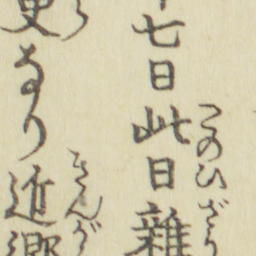 七日此日雜
このひざう
更なり近郷
きんが